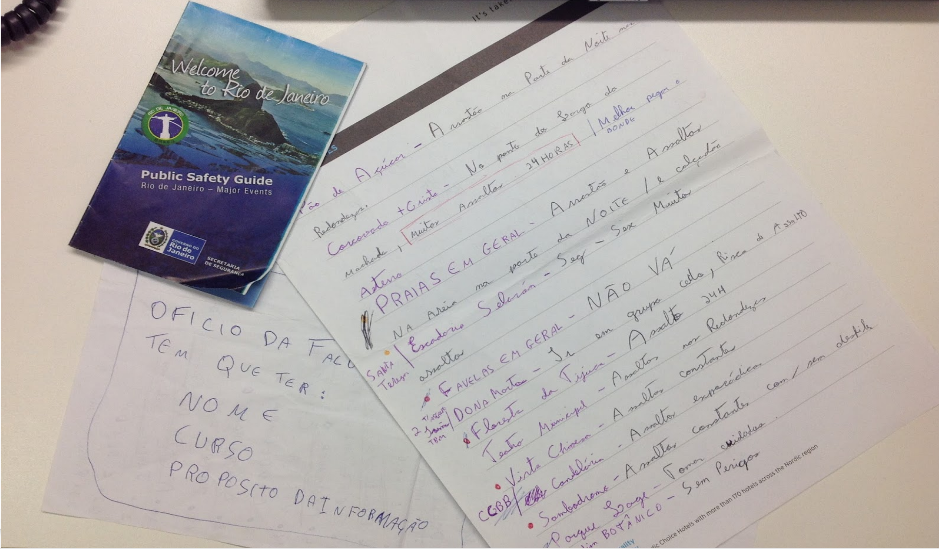 It's take
Welcome
to Rio de Janeiro
RIO DE JANEIRO
Public Safety Guide
Rio de Janeiro – Major Events
GOVERNO DO
Rio de
Janeiro
SECRETARIA
DE SEGURANÇA
OFICIO DA FACU
TEM QUE TER:
NOME
CURSO
PROPOSITO DA INFORMAÇÃO
ão de Açúcar - Assaltão na Parte da Noite
Redondezas.
Corcovado + Cristo - No ponto do Largo do
Machado, Muitos Assaltos 24 HORAS / Melhor pegar o
BONDE
Aterro
PRAIAS EM GERAL - Assaltos e Assaltos
NA Areia na parte da NOITE / e calçadão
Escadaria Selarón - Seg - Sex Muitos
assaltos
Santa
Teresa
FAVELAS EM GERAL - NÃO VÁ
DONA Marta - Ir em grupo, Risco de Assalto
Floresta da Tijuca - Assalto 24H
Teatro Municipal - Assaltos nas Redondezas
Vista Chinesa - Assaltos constantes
CCBB / Candelária - Assaltos esporádicos
Sambodromo - Assaltos constantes com / sem desfile
Parque Lage - Tomar cuidado
im BOTÂNICO - Sem Perigo
c Choice Hotels with more than 170 hotels across the Nordic region
ality